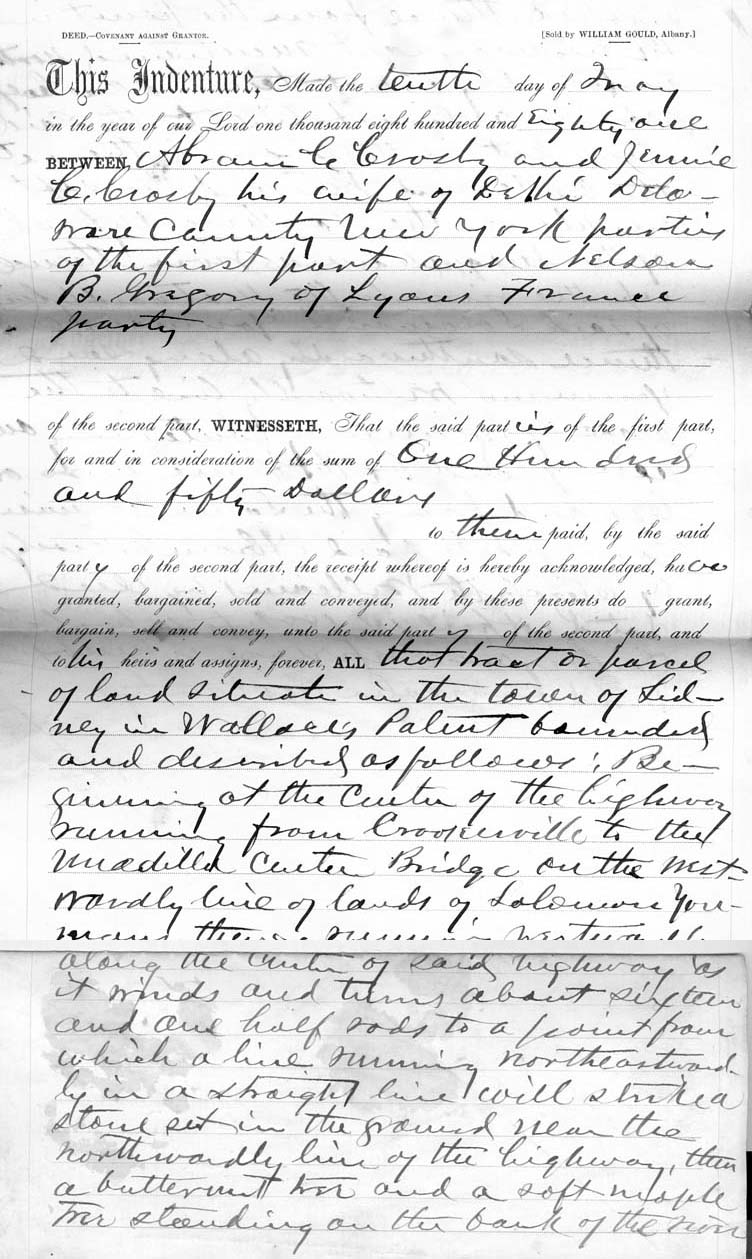 DEED.—COVENANT AGAINST GRANTOR. [Sold by WILLIAM GOULD, Albany.]
This Indenture, Made the tenth day of May
in the year of our Lord one thousand eight hundred and Eighty one
BETWEEN Abram C Crosby and Jennie
C. Crosby his wife of Delhi Dela-
ware County New York parties
of the first part and Nelson
B. Gregory of Lyons France
party
of the second part, WITNESSETH, That the said parties of the first part,
for and in consideration of the sum of One Hundred
and fifty Dollars
to them paid, by the said
party of the second part, the receipt whereof is hereby acknowledged, have
granted, bargained, sold and conveyed, and by these presents do grant,
bargain, sell and convey, unto the said party of the second part, and
to his heirs and assigns, forever, ALL that tract or parcel
of land situate in the town of Sid-
ney in Wallace's Patent bounded
and described as follows: Be-
ginning at the Center of the highway
running from Crookerville to the
Unadilla Center Bridge on the west-
wardly line of lands of Solomon You-
mans thence running westwardly
along the Center of said highway as
it winds and turns about sixteen
and one half rods to a point from
which a line running northeastward-
ly in a straight line will strike a
stone set in the ground near the
northwardly line of the highway, then
a butternut tree and a soft maple
tree standing on the bank of the river